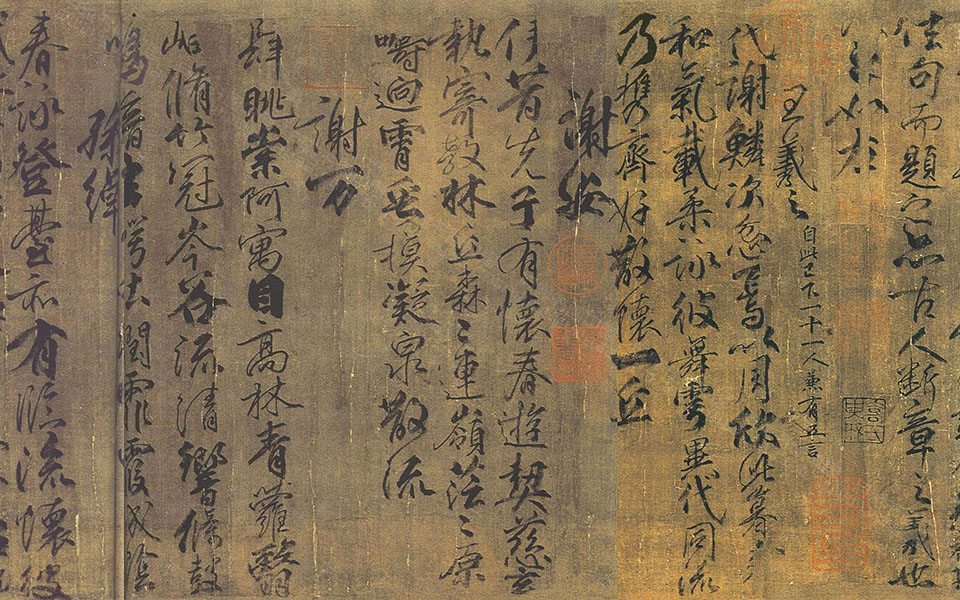 佳句而題之亦古人断章之義也
王羲之 自此已下一十一人兼有五言
代謝鱗次忽焉以周欣此暮春
和氣載柔詠彼舞雩異代同流
乃攜齊好散懷一丘
謝安
伊昔先子有懷春遊契茲言
執寄敖林丘森〻連嶺茫〻原
迥霄垂凝泉散流
謝万
肆眺崇阿寓目高林青蘿翳
岫脩竹冠岑谷流清響條鼓
鳴音玄崿吐潤霏霧成陰
孫綽
春詠登臺亦有臨流懷彼